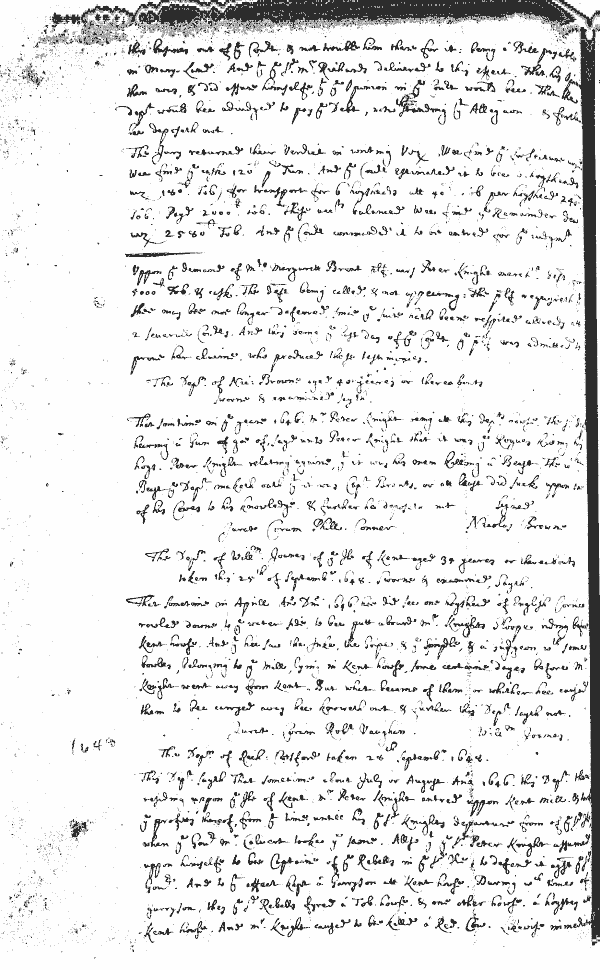 this busines out of ye Court, & not trouble him there for it: being a Bill payable
in Mary-Land. And ye sd Mr Richards delivered to this effect. That his opinion
then was, & did assure himselfe, ye Opinion in ye Court would bee. That the
dept would bee adiudged to pay ye Debt, notwthstanding ye Allegaon. & further
hee deposeth not.
The Jury returned their Verdict in writing Vizt. Wee find ye forfeiture
Wee find ye caske 120l p Tun. And ye Court estimated it to bee hogsheads
viz 180l Tob, for transport for 6 hogsheads att 40l Tob per hogshead 240
Tob. Payd 2000l Tob. These acts balanced Wee find ye Remainder due
viz 2580l Tob. And ye Court commanded it to be entred for ye iudgmt
Uppon ye demand of Mrs Margarett Brent plt. agst Peter Knight marcht. deft for
5000l Tob. & cask. The deft being called, & not appearing: the plt requireth
shee may bee noe longer deferred, since ye suite hath beene respited already att
2 severall Courts. And this being ye last day of ye Court, ye plt was admitted to
prove her claime, who produced these testimonies.
The Dept. of Nic: Browne aged 40 yeares or thereabouts
sworne & examined sayth.
That somtime in ye yeare 1646. Mr Peter Knight being att this depts house, the sd dept
hearing a Gun of goe of, sayd unto Peter Knight that it was ye Rogues killing his
hogs. Peter Knight relating againe, yt it was his men killing a Beast. The wch
Beast ye Dept maketh oath yt it was Capt Brents, or att least did suck uppon one
of his Cowes to his knowledge. & further hee deposeth not Signed
Jurat Coram Phill: Conner Nicolas Browne
The Dept. of Willm. Joanes of ye Ile of Kent aged 34 yeares or thereabouts
taken this 25th of Septembr 1648. sworne & examined Sayth.
That sometime in Aprill Ano Dni 1646 hee did see one hogshead of English Goods
rowled downe to ye water side to bee put aboard Mr Knights Shloope riding before
Kent house. And yt hee saw the Inke, the Rope, & ye Spindle & a iudgeon wth some
boultes, belonging to ye mill, lying in Kent house, some certaine dayes before Mr
Knight went away from Kent. But what became of them or whither hee caused
them to bee carryed away hee knoweth not. & further this Dept sayth not.
Jurat. Coram Robt Vaughan. Willm Joanes.
1648
The Dept. of Rich: Cotsford taken 28th Septembr 1648.
This Dept. sayth That sometime about July or August Ano 1646. this Dept. then
residing uppon ye Ile of Kent. Mr Peter Knight entred uppon Kent mill. & tooke
ye profitts thereof, from yt time, untill his ye sd Knights departure from of ye sd Ile
when ye Govr Mr Calvert tooke ye same. Allso yt ye sd Peter Knight assumed
uppon himselfe to bee Captaine of ye Rebells in ye sd Ile, to defend it agst ye sd
Govr. And to yt effect kept a Garryson att Kent house. During wch times of
garryson, they ye sd Rebells fyred a Tob. house. & one other house. a hogstey att
Kent house. And Mr Knight caused to be killed a Red Cow. Likewise immediately